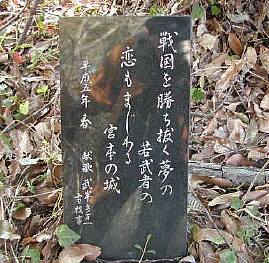 戦国を勝ち抜く夢の
若武者の
恋もまじわる
宮本の城
平成五年 春
献歌